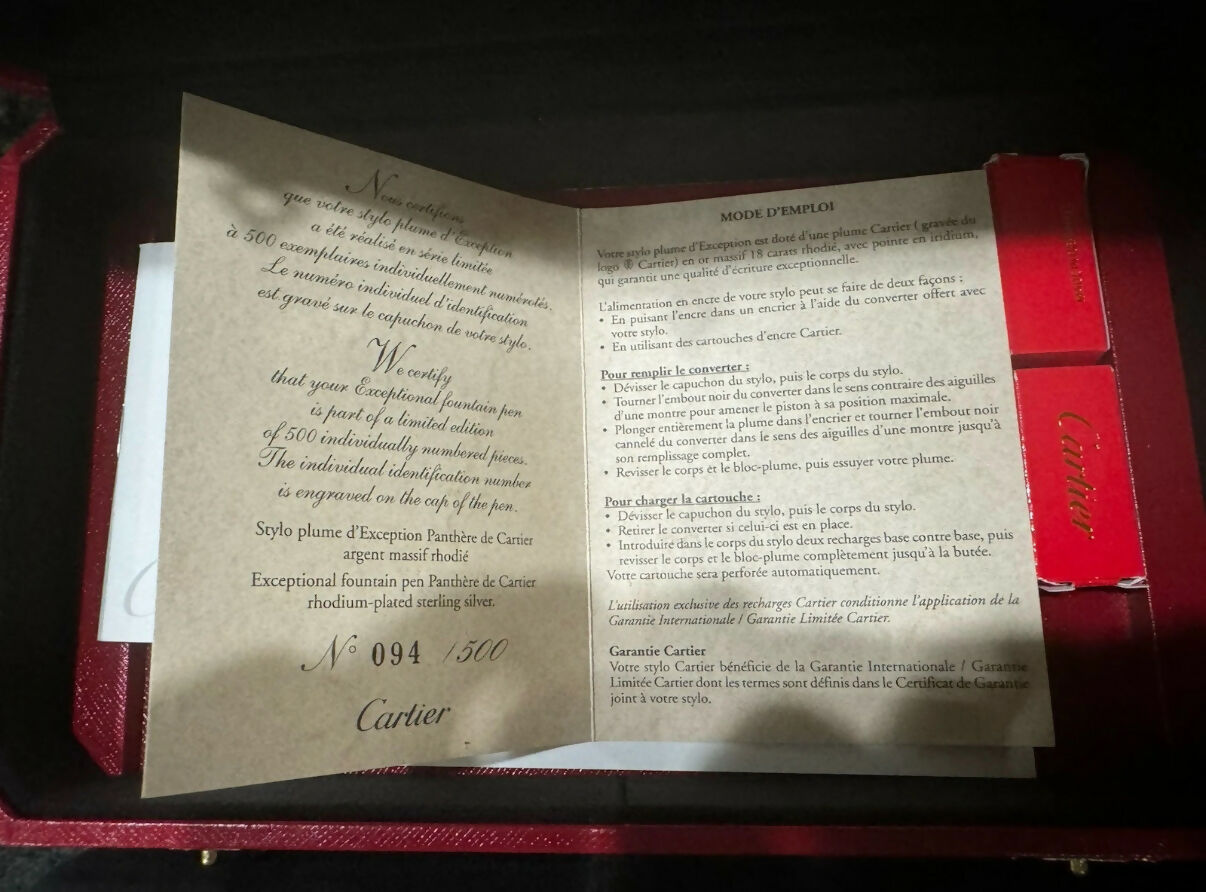 Nous certifions
que votre stylo plume d'Exception
a été réalisé en série limitée
à 500 exemplaires individuellement numérotés.
Le numéro individuel d'identification
est gravé sur le capuchon de votre stylo.
We certify
that your Exceptional fountain pen
is part of a limited edition
of 500 individually numbered pieces.
The individual identification number
is engraved on the cap of the pen.
Stylo plume d'Exception Panthère de Cartier
argent massif rhodié
Exceptional fountain pen Panthère de Cartier
rhodium-plated sterling silver.
N° 094 /500
Cartier
MODE D'EMPLOI
Votre stylo plume d'Exception est doté d'une plume Cartier ( gravée du
logo ® Cartier) en or massif 18 carats rhodié, avec pointe en iridium,
qui garantit une qualité d'écriture exceptionnelle.
L'alimentation en encre de votre stylo peut se faire de deux façons :
• En puisant l'encre dans un encrier à l'aide du converter offert avec
votre stylo.
• En utilisant des cartouches d'encre Cartier.
Pour remplir le converter :
• Dévisser le capuchon du stylo, puis le corps du stylo.
• Tourner l'embout noir du converter dans le sens contraire des aiguilles
d'une montre pour amener le piston à sa position maximale.
• Plonger entièrement la plume dans l'encrier et tourner l'embout noir
cannelé du converter dans le sens des aiguilles d'une montre jusqu'à
son remplissage complet.
• Revisser le corps et le bloc-plume, puis essuyer votre plume.
Pour charger la cartouche :
• Dévisser le capuchon du stylo, puis le corps du stylo.
• Retirer le converter si celui-ci est en place.
• Introduire dans le corps du stylo deux recharges base contre base, puis
revisser le corps et le bloc-plume complètement jusqu'à la butée.
Votre cartouche sera perforée automatiquement.
L'utilisation exclusive des recharges Cartier conditionne l'application de la
Garantie Internationale / Garantie Limitée Cartier.
Garantie Cartier
Votre stylo Cartier bénéficie de la Garantie Internationale / Garantie
Limitée Cartier dont les termes sont définis dans le Certificat de Garantie
joint à votre stylo.
Cartier